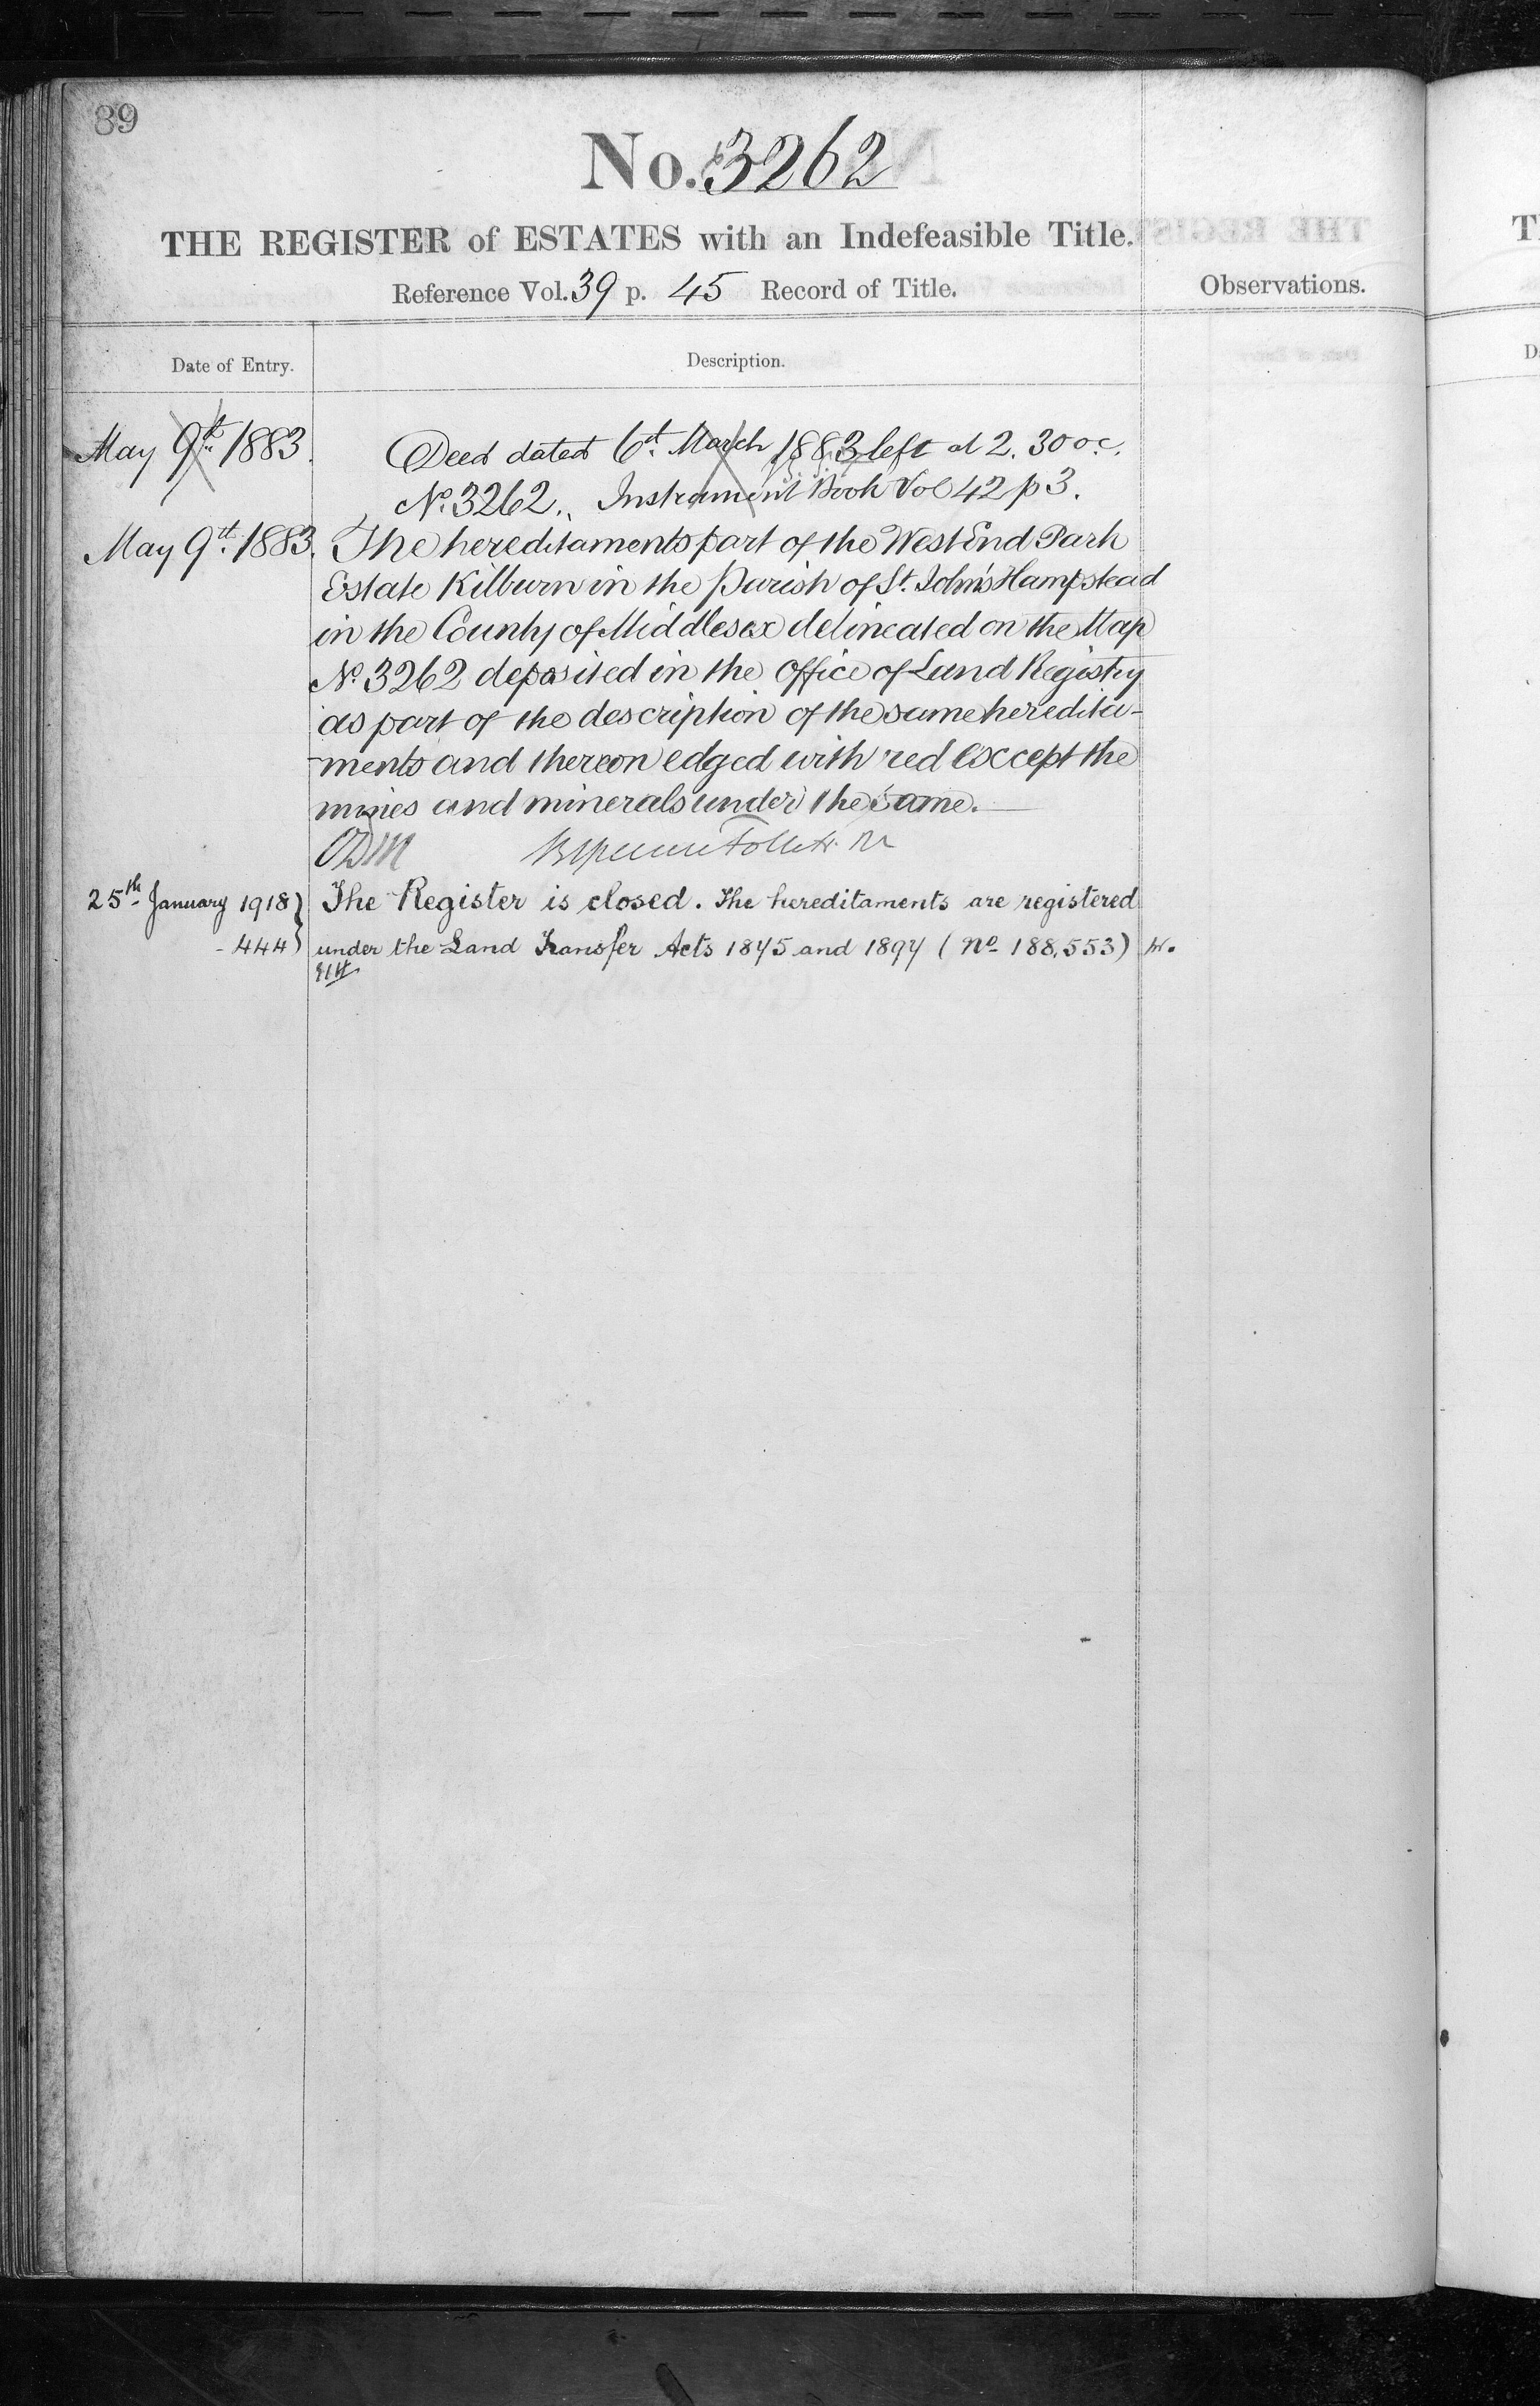 89
No. 3262
THE REGISTER of ESTATES with an Indefeasible Title.
Reference Vol. 39 p. 45 Record of Title.
Observations.
Date of Entry.
Description.
May 9th 1883. Deed dated 6th March 1883 left at 2.30 o.c.
No. 3262. Instrument Book Vol 42 p 3.
May 9th 1883. The hereditaments part of the West End Park
Estate Kilburn in the Parish of St. John's Hampstead
in the County of Middlesex delineated on the Map
No. 3262 deposited in the Office of Land Registry
as part of the description of the same heredita-
ments and thereon edged with red except the
mines and minerals under the same.
25th January 1918 } The Register is closed. The hereditaments are registered
444 } under the Land Transfer Acts 1875 and 1897 (No 188,553)